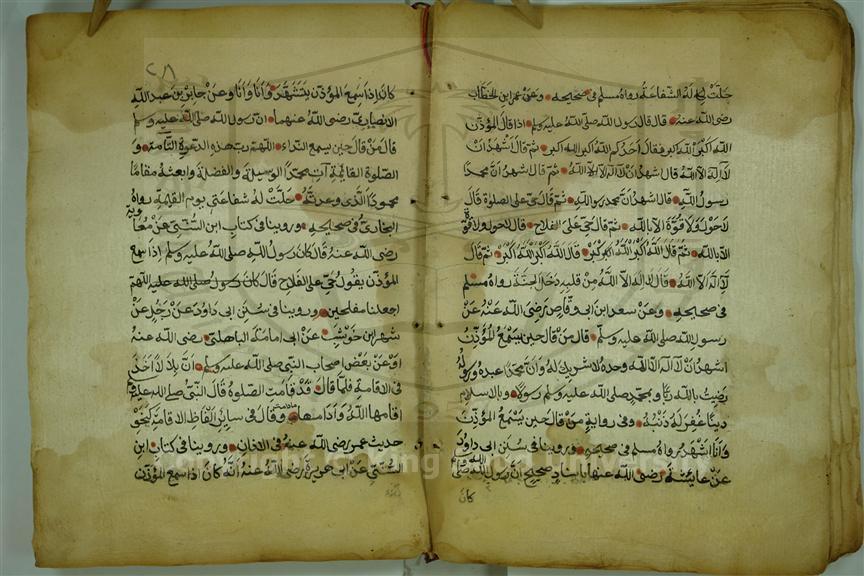 حلت له الشفاعة رواه مسلم في صحيحه وعن عمر ابن الخطاب
رضي الله عنه قال قال رسول الله صلى الله عليه وسلم اذا قال المؤذن
الله اكبر الله اكبر فقال احدكم الله اكبر الله اكبر ثم قال اشهد ان
لا اله الا الله قال اشهد ان لا اله الا الله ثم قال اشهد ان محمدا
رسول الله قال اشهد ان محمد رسول الله ثم قال حي على الصلوة قال
لا حول ولا قوة الا بالله ثم قال حي على الفلاح قال لا حول ولا قوة
الا بالله ثم قال الله اكبر الله اكبر قال الله اكبر الله اكبر ثم قال
لا اله الا الله قال لا اله الا الله من قلبه دخل الجنة رواه مسلم
في صحيحه وعن سعد ابن ابي وقاص رضي الله عنه عن
رسول الله صلى الله عليه وسلم قال من قال حين يسمع المؤذن
اشهد ان لا اله الا الله وحده لا شريك له وان محمدا عبده ورسوله
رضيت بالله ربا وبمحمد صلى الله عليه وسلم رسولا وبالاسلام
دينا غفر له ذنبه وفي رواية من قال حين يسمع المؤذن
وانا اشهد رواه مسلم في صحيحه وروينا في سنن ابي داود
عن عايشة رضي الله عنها باسناد صحيح ان رسول الله صلى
كان
٢٨
كان اذا سمع المؤذن يتشهد وانا وانا وعن جابر بن عبد الله
الانصاري رضي الله عنهما ان رسول الله صلى الله عليه وسلم
قال من قال حين يسمع النداء اللهم رب هذه الدعوة التامة و
الصلوة القايمة آت محمدا الوسيلة والفضيلة وابعثه مقاما
محمودا الذي وعدته حلت له شفاعتي يوم القيمة رواه
البخاري في صحيحه وروينا في كتاب ابن السني عن معاوية
رضي الله عنه قال كان رسول الله صلى الله عليه وسلم اذا سمع
المؤذن يقول حي على الفلاح قال كان رسول صلى الله عليه اللهم
اجعلنا مفلحين وروينا في سنن ابي داود عن رجل عن
شهر ابن حوشب عن ابي امامة الباهلي رضي الله عنه
او عن بعض اصحاب النبي صلى الله عليه وسلم ان بلالا اخذ
في الاقامة فلما قال قد قامت الصلوة قال النبي صلى الله عليه
اقامها الله وادامها وقال في ساير الفاظ الاقامة كنحو
حديث عمر رضي الله عنه في الاذان وروينا في كتاب ابن
السني عن ابي هريرة رضي الله عنه انه كان اذا سمع المؤذن